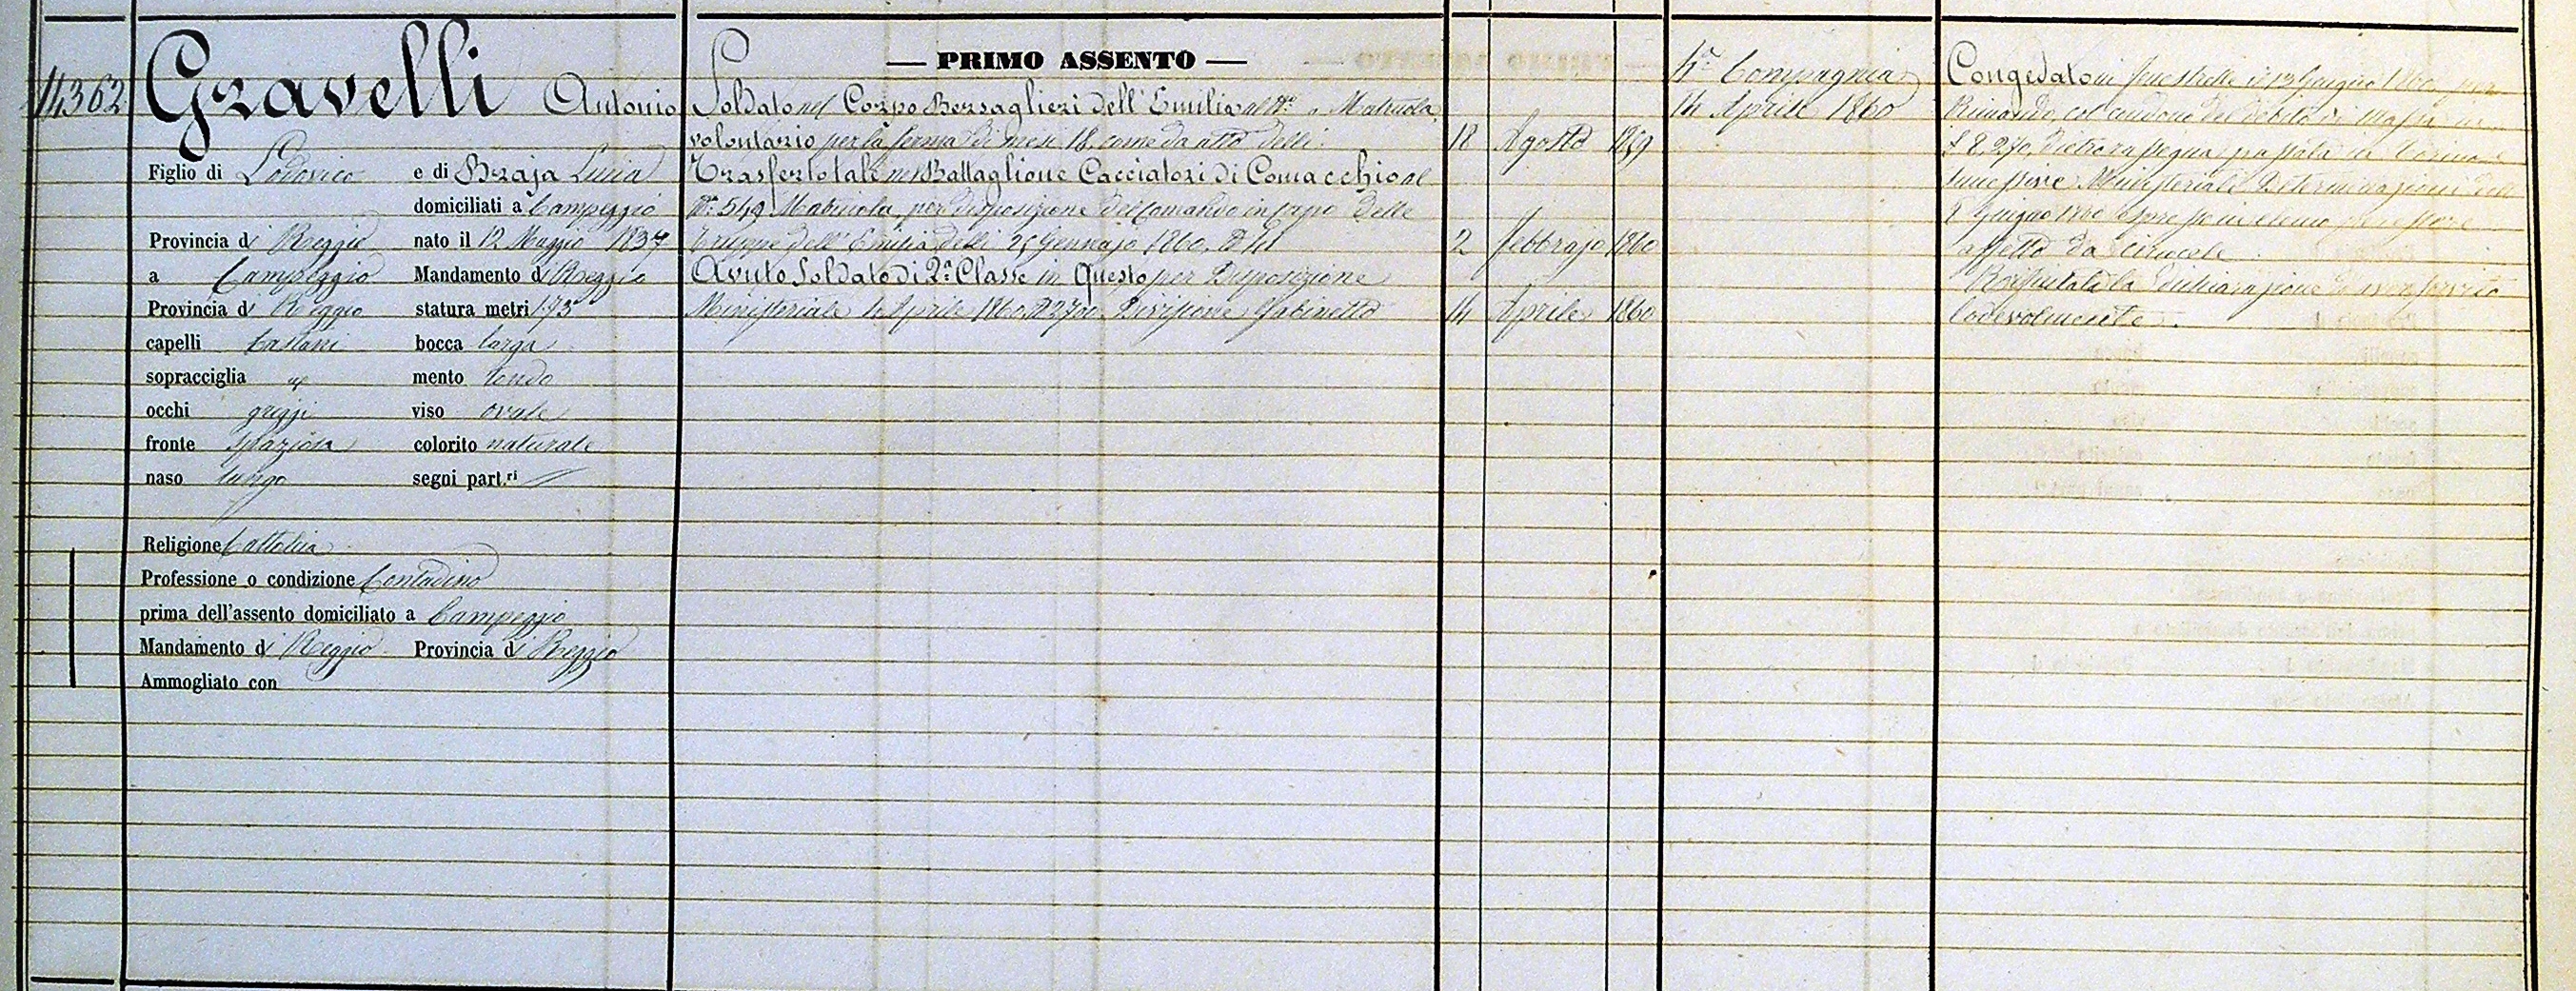 14362
Gravelli Antonio
Figlio di Lodovico e di Braja Lucia
domiciliati a Campeggio
Provincia di Reggio nato il 12 Maggio 1837
a Campeggio Mandamento di Reggio
Provincia di Reggio statura metri 1.73
capelli Castani bocca larga
sopracciglia " mento tondo
occhi griggi viso ovale
fronte spaziosa colorito naturale
naso lungo segni part.ri //
Religione Cattolica
Professione o condizione Contadino
prima dell'assento domiciliato a Campeggio
Mandamento di Reggio Provincia di Reggio
Ammogliato con
— PRIMO ASSENTO —
Soldato nel Corpo Bersaglieri dell'Emilia al N.° " Matricola
volontario per la ferma di mesi 18, come da atto delli. 18 Agosto 1859
Trasferto tale nel Battaglione Cacciatori di Comacchio al
N.° 549 Matricola, per disposizione del Comando in capo delle
truppe dell'Emilia delli 25 Gennajo 1860. 2 febbrajo 1860
Avuto Soldato di 2.a Classe in Questo per Disposizione
Ministeriale 1 Aprile 1860. N 2700. Divisione Gabinetto 14 Aprile 1860
4.a Compagnia
14 Aprile 1860
Congedato in fenestrelle il 13 Giugno 1860, per
Rimando, col condono del debito di massa in
£ 8,270, dietro rassegna passata in Torino e
Ministeriale Determinazione
Giugno 1860
affetto da
la dichiarazione d'aver servito
lodevolmente.